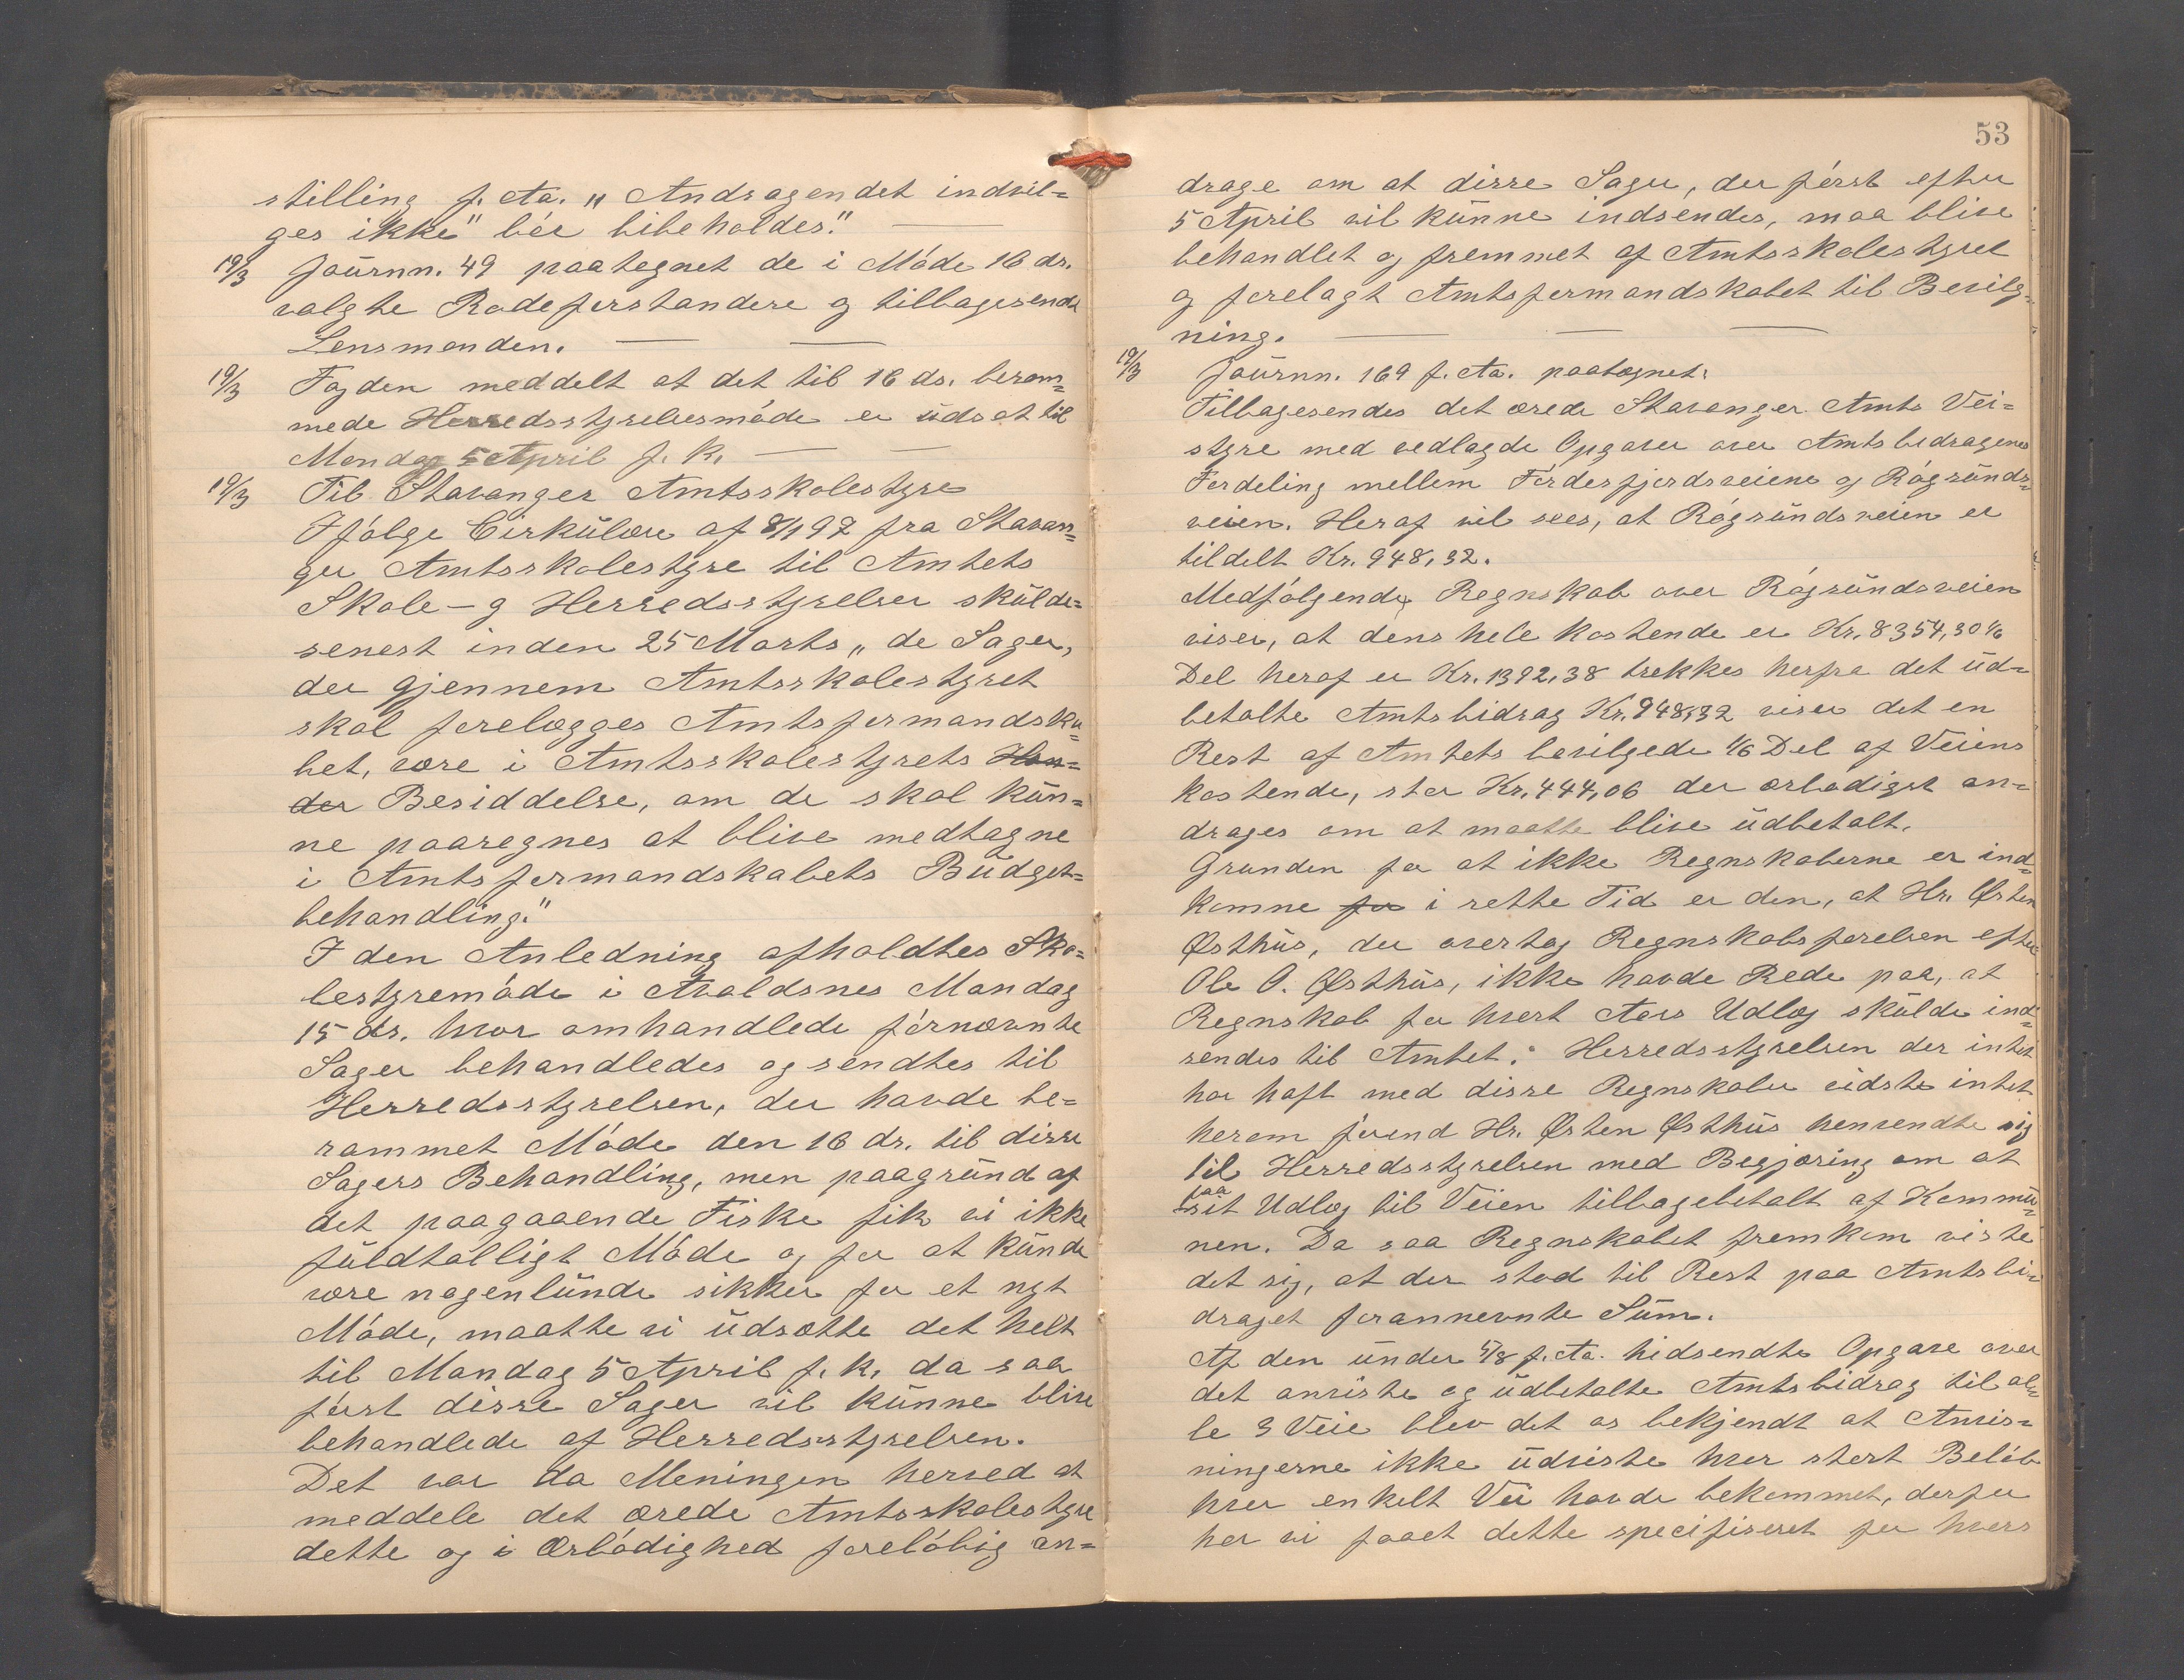 stilling f. Aa. „Andragendet indvil=
ges ikke" bør bibeholdes."
19/3 Journn. 49 paategnet de i Møde 16 ds.
valgte Rodeforstandere og tilbagesendt
Lensmanden.
19/3 Fogden meddelt at det til 16 ds. beram=
mede Herredsstyrelsesmøde er udsat til
Mandag 5 April f. k.
19/3 Til Stavanger Amtsskolestyre
Ifølge Cirkulære af 8/1 97 fra Stavan=
ger Amtsskolestyre til Amtets
Skole- og Herredsstyrelser skulde=
senest inden 25 Marts „de Sager,
der gjennem Amtsskolestyret
skal forelægges Amtsformandska=
bet, være i Amtsskolestyrets Hæn=
der Besiddelse, om de skal kun=
ne paaregnes at blive medtagne
i Amtsformandskabets Budget=
behandling."
I den Anledning afholdtes Sko=
lestyremøde i Avaldsnes Mandag
15 ds. hvor omhandlede førnævnte
Sager behandledes og sendtes til
Herredsstyrelsen, der havde be=
rammet Møde den 16 ds. til disse
Sagers Behandling, men paagrund af
det paagaaende Fiske fik vi ikke
fuldtalligt Møde og for at kunde
være nogenlunde sikker for et nyt
Møde, maatte vi udsætte det helt
til Mandag 5 April f. k. da saa
først disse Sager vil kunne blive
behandlede af Herredsstyrelsen.
Det var da Meningen herved at
meddele det ærede Amtsskolestyre
dette og i Ærbødighed foreløbig an=
53
drage om at disse Sager, der først efter
5 April vil kunne indsendes, maa blive
behandlet og fremmet af Amtsskolestyret
og forelagt Amtsformandskabet til Bevilg=
ning.
19/3 Journn. 169 f. Aa. paategnet:
Tilbagesendes det ærede Stavanger Amts Vei=
styre med vedlagde Opgaver over Amtsbidragenes
Fordeling mellem Førdesfjordsveiene og Røgsunds=
veien. Heraf vil sees, at Røgsundsveien er
tildelt Kr. 948,32.
Medfølgende Regnskab over Røgsundsveien
viser, at dens hele kostende er Kr. 8354,30 1/6
Del heraf er Kr. 1392,38 trekkes herfra det ud=
betalte Amtsbidrag Kr. 948,32 viser det en
Rest af Amtets bevilgede 1/6 Del af Veiens
kostende, stor Kr. 444,06 der ærbødigst an=
drages om at maatte blive udbetalt.
Grunden for at ikke Regnskaberne er ind=
komne for i rette Tid er den, at Hr. Østen
Østhus, der overtog Regnskabsførelsen efter
Ole O. Østhus, ikke havde Rede paa, at
Regnskab for hvert Aars Udlæg skulde ind=
sendes til Amtet. Herredsstyrelsen der intet
har haft med disse Regnskaber vidste intet
herom førend Hr. Østen Østhus henvendte sig
til Herredsstyrelsen med Begjæring om at
faa sit Udlæg til Veien tilbagebetalt af Kommu=
nen. Da saa Regnskabet fremkom viste
det sig, at der stod til Rest paa Amtsbi=
draget forannevnte Sum.
Af den under f. Aa. hidsendte Opgave over
det anviste og udbetalte Amtsbidrag til al=
le 3 Veie blev det os bekjendt at Anvis=
ningerne ikke udviste hvor stort Beløb
hver enkelt Vei havde bekommet, derfor
har vi faaet dette specifiseret for hvers